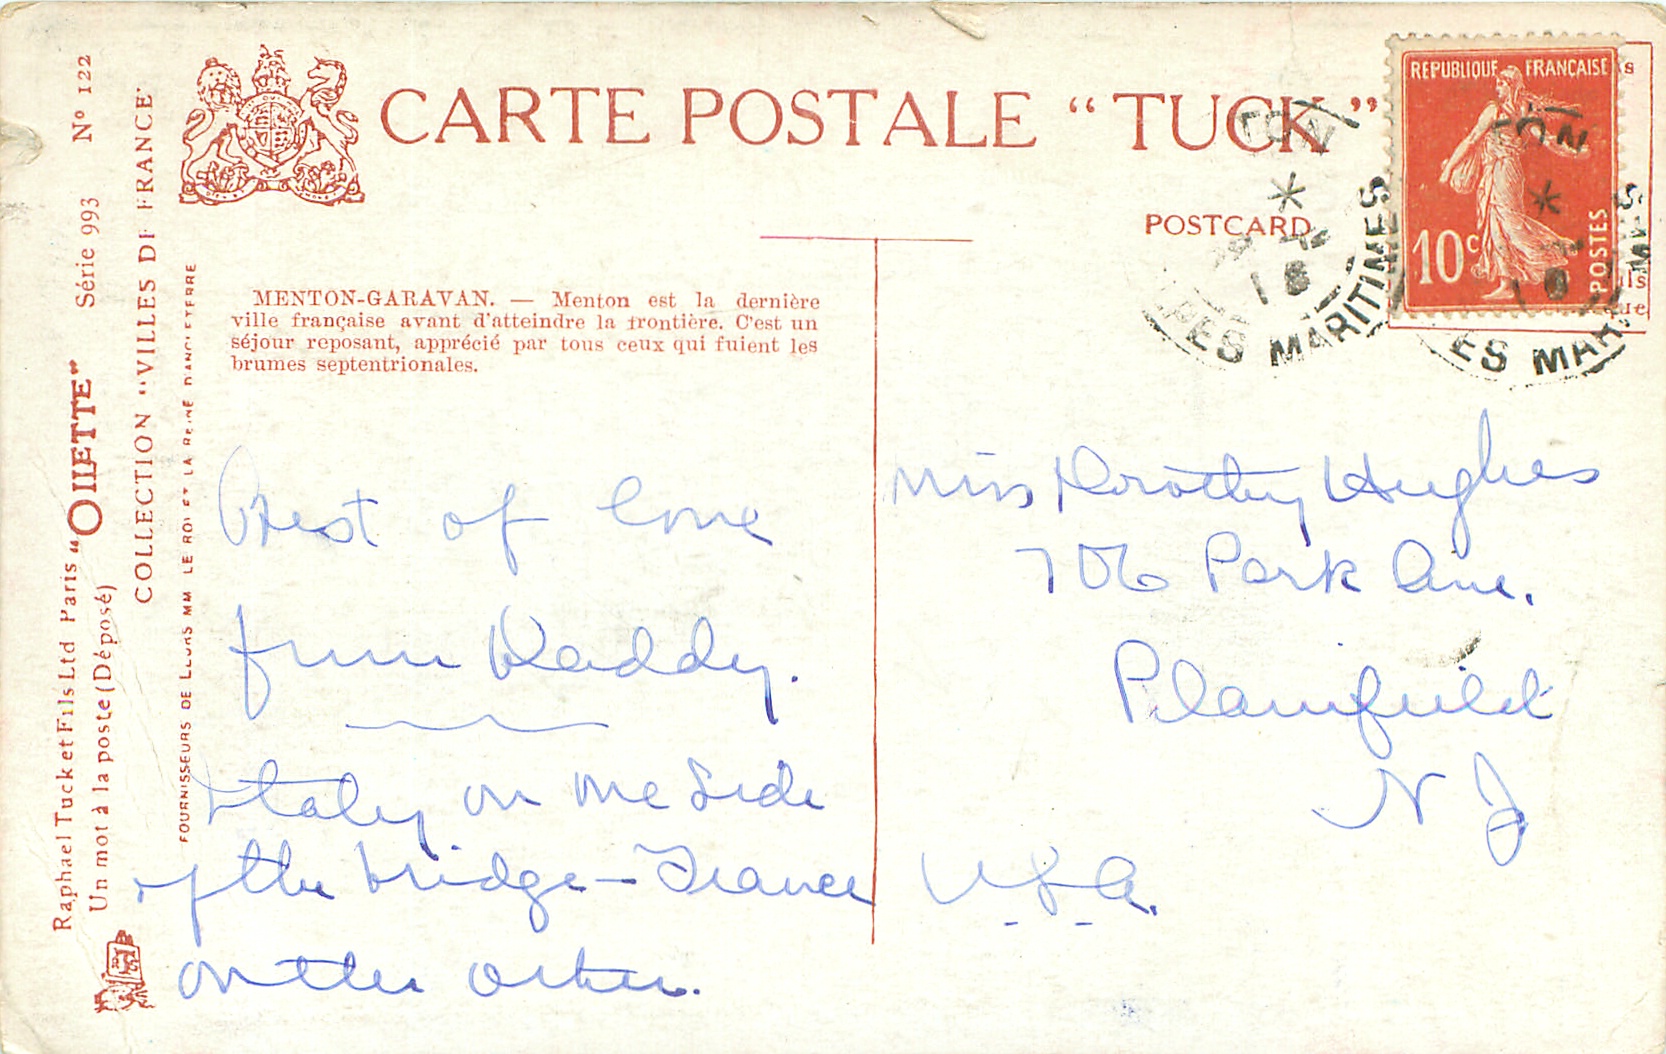 CARTE POSTALE "TUCK"
POSTCARD
Nº 122
Série 993
Raphael Tuck et Fils Ltd Paris "OILETTE"
Un mot à la poste (Déposé)
COLLECTION "VILLES DE FRANCE"
FOURNISSEURS DE LEURS MM LE ROI ET LA REINE D'ANGLETERRE
MENTON-GARAVAN. — Menton est la dernière
ville française avant d'atteindre la frontière. C'est un
séjour reposant, apprécié par tous ceux qui fuient les
brumes septentrionales.
REPUBLIQUE FRANÇAISE
10c
POSTES
TON
*
18
PES MARITIMES
ON
*
18
ES MARITIMES
Best of love
from Daddy.
Italy on one side
of the bridge – France
on the other.
Miss Dorothy Hughes
706 Park Ave.
Plainfield
N J
U.S.A.